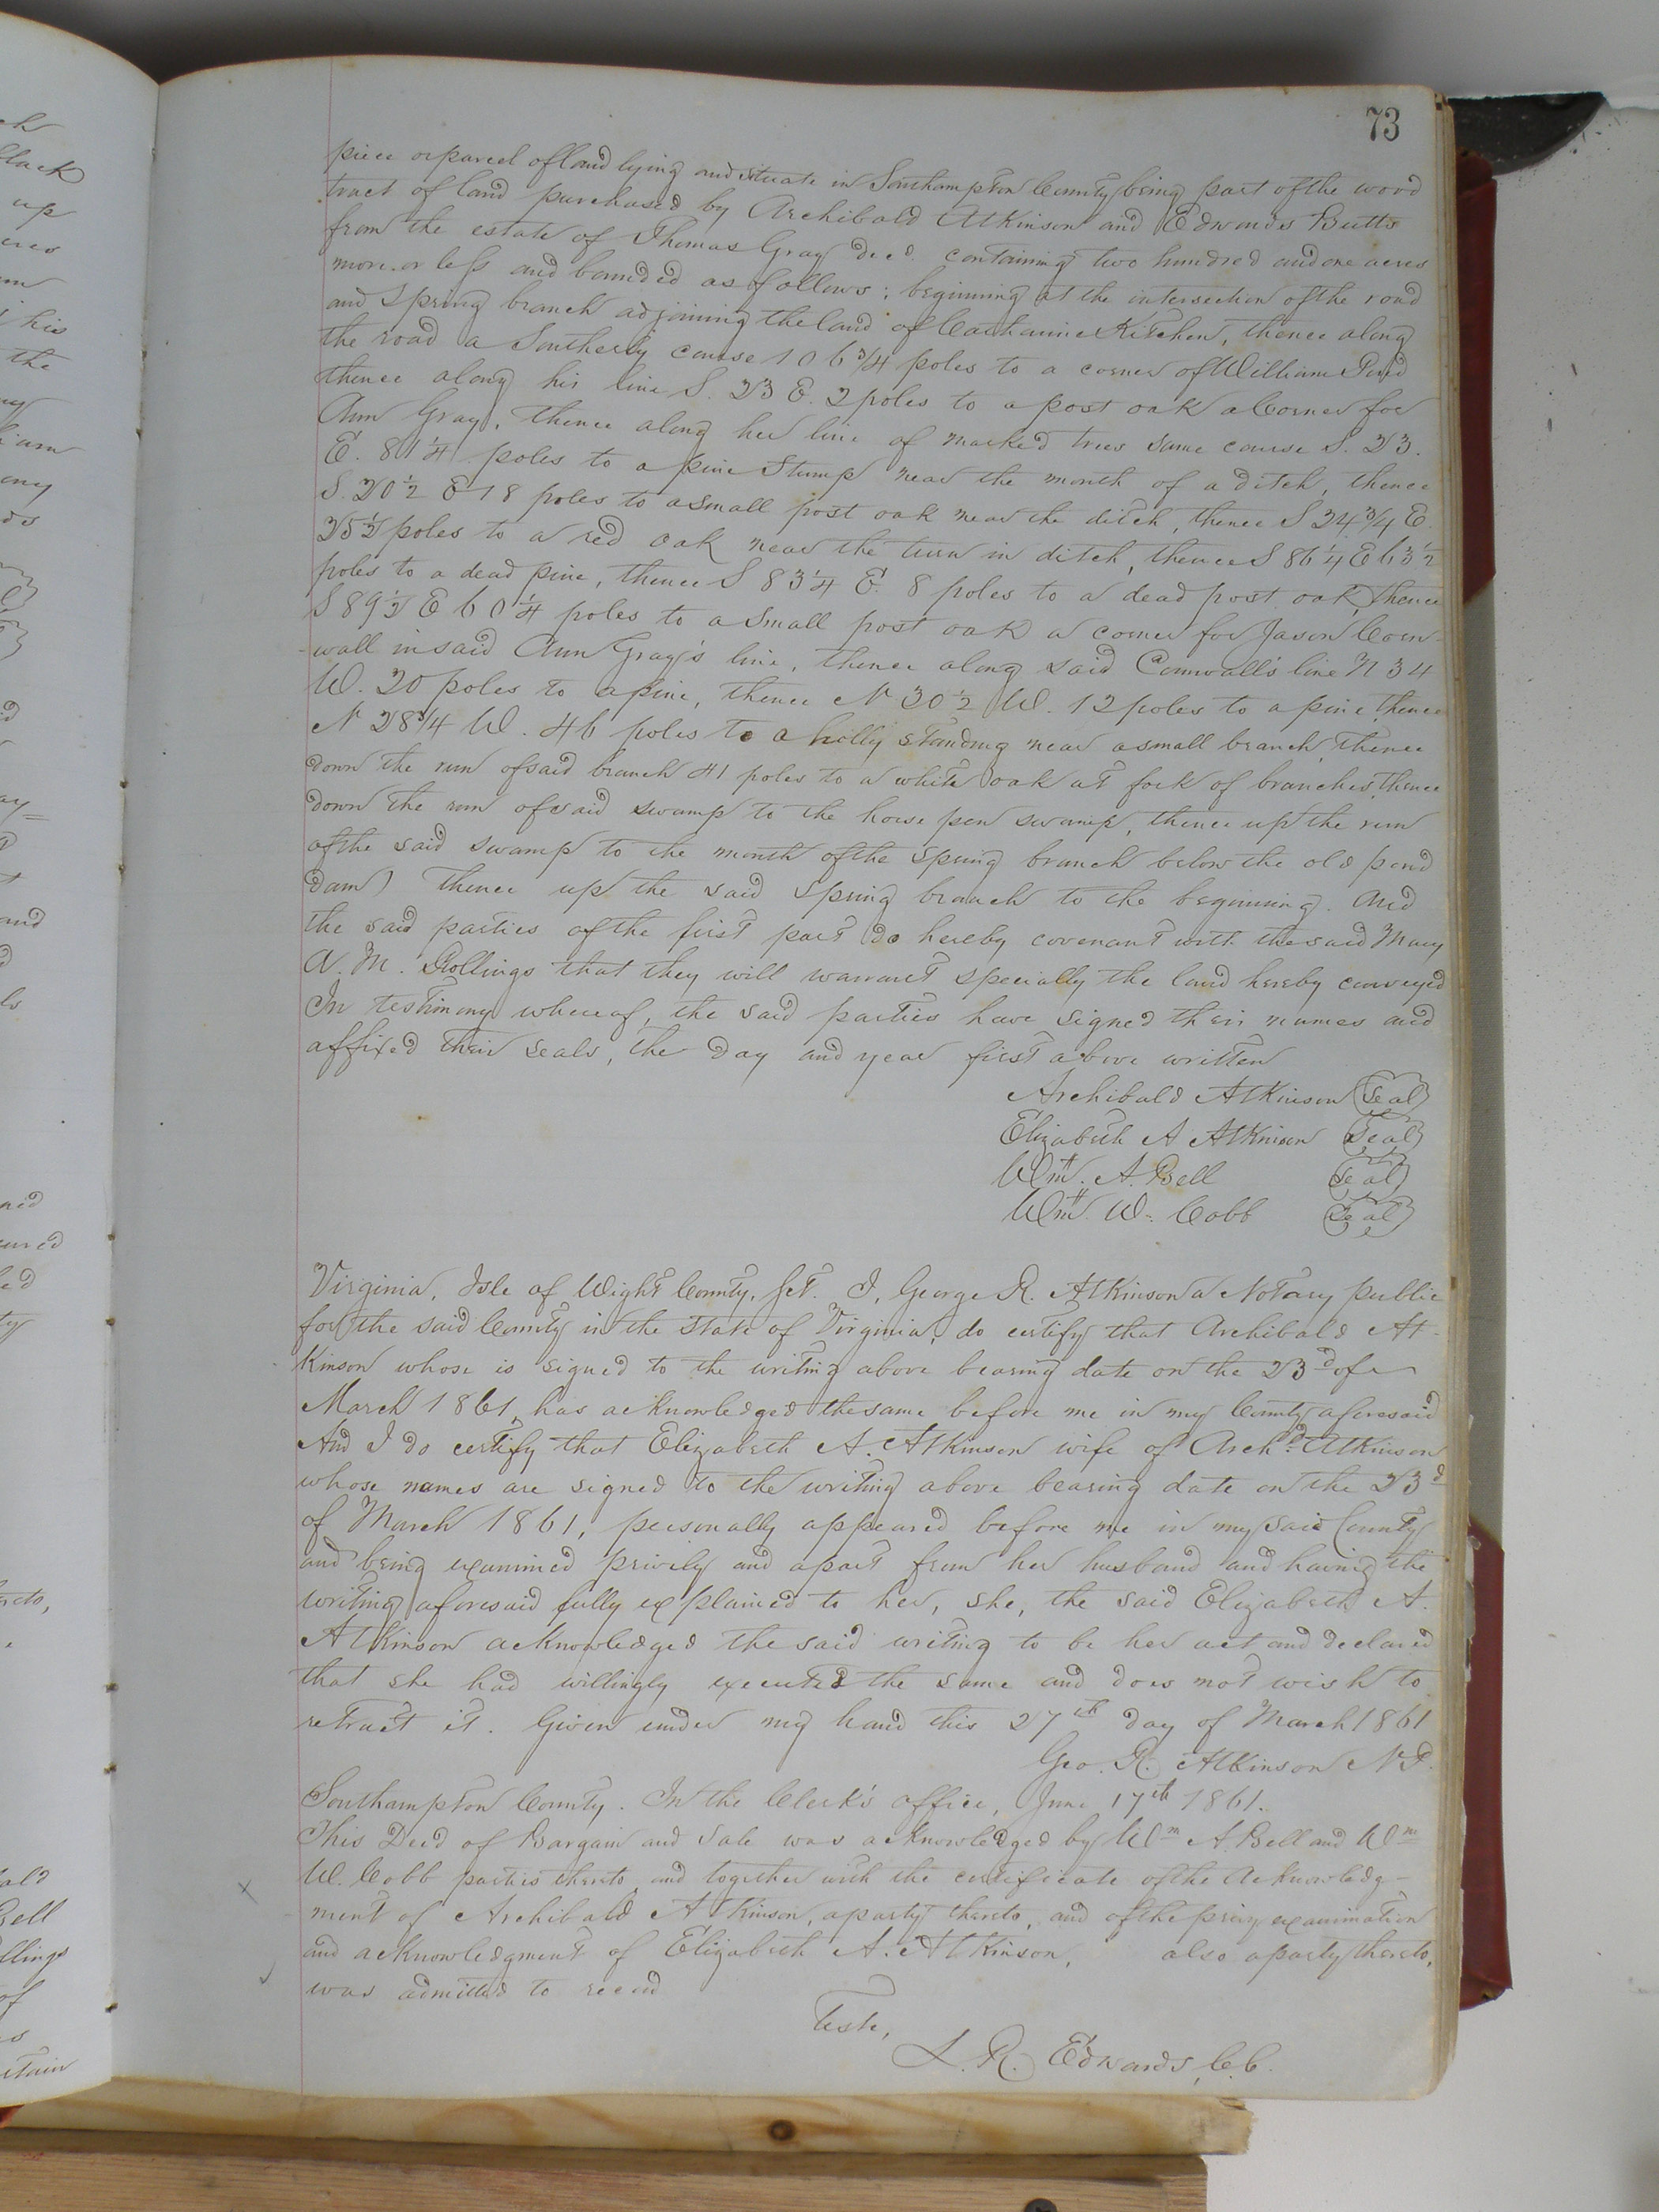 73
piece or parcel of land lying and situate in Southampton County, being part of the wood
tract of land purchased by Archibald Atkinson and Edwards Butts
from the estate of Thomas Gray decd. containing two hundred and one acres
more or less and bounded as follows; beginning at the intersection of the road
and Spring branch adjoining the land of Catharine Kitchen, thence along
the road a Southerly course 106 3/4 poles to a corner of William
thence along his line S. 23 E. 2 poles to a post oak a Corner for
Ann Gray, thence along her line of marked trees same course S. 23.
E. 81 1/4 poles to a pine Stump near the mouth of a ditch, thence
S. 20 1/2 E 18 poles to a small post oak near the ditch, thence S 24 3/4 E.
25 1/2 poles to a red oak near the turn in ditch, thence S 86 1/4 E 63 1/2
poles to a dead pine, thence S 83 1/4 E. 8 poles to a dead post oak, thence
S 89 1/2 E 60 1/4 poles to a small post oak a corner for Jason Corn-
-wall in said Ann Gray's line, thence along said Cornwall's line N 34
W. 20 poles to a pine, thence N 30 1/2 W. 12 poles to a pine thence
N 28 3/4 W. 46 poles to a holly standing near a small branch, thence
down the run of said branch 41 poles to a white oak at fork of branches, thence
down the run of said swamp to the horse pen swamp, thence up the run
of the said swamp to the mouth of the spring branch below the old pond
dam) thence up the said spring branch to the beginning. And
the said parties of the first part do hereby covenant with the said Mary
A. M. Rollings that they will warrant specially the land hereby conveyed
In testimony whereof, the said parties have signed their names and
affixed their seals, the day and year first above written
Archibald Atkinson {Seal}
Elizabeth A Atkinson {Seal}
Wm. A. Bell {Seal}
Wm. W. Cobb {Seal}
Virginia, Isle of Wight County, Sct. I, George R. Atkinson a Notary public
for the said County in the State of Virginia, do certify that Archibald At-
kinson whose is signed to the writing above bearing date on the 23d of
March 1861, has acknowledged the same before me in my County aforesaid
And I do certify that Elizabeth A. Atkinson wife of Archd. Atkinson
whose names are signed to the writing above bearing date on the 23d
of March 1861, personally appeared before me in my said County
and being examined privily and apart from her husband and having the
writing aforesaid fully explained to her, she, the said Elizabeth A.
Atkinson acknowledged the said writing to be her act, and declared
that she had willingly executed the same and does not wish to
retract it. Given under my hand this 27th day of March 1861
Geo. R. Atkinson N.P.
Southampton County. In the Clerk's office, June 17th 1861.
This Deed of Bargain and Sale was acknowledged by Wm A. Bell and Wm
W. Cobb parties thereto, and together with the certificate of the acknowledg-
ment of Archibald Atkinson, a party thereto, and of the privy examination
and acknowledgment of Elizabeth A. Atkinson, also a party thereto,
was admitted to record
Teste,
L. R. Edwards, C.C.